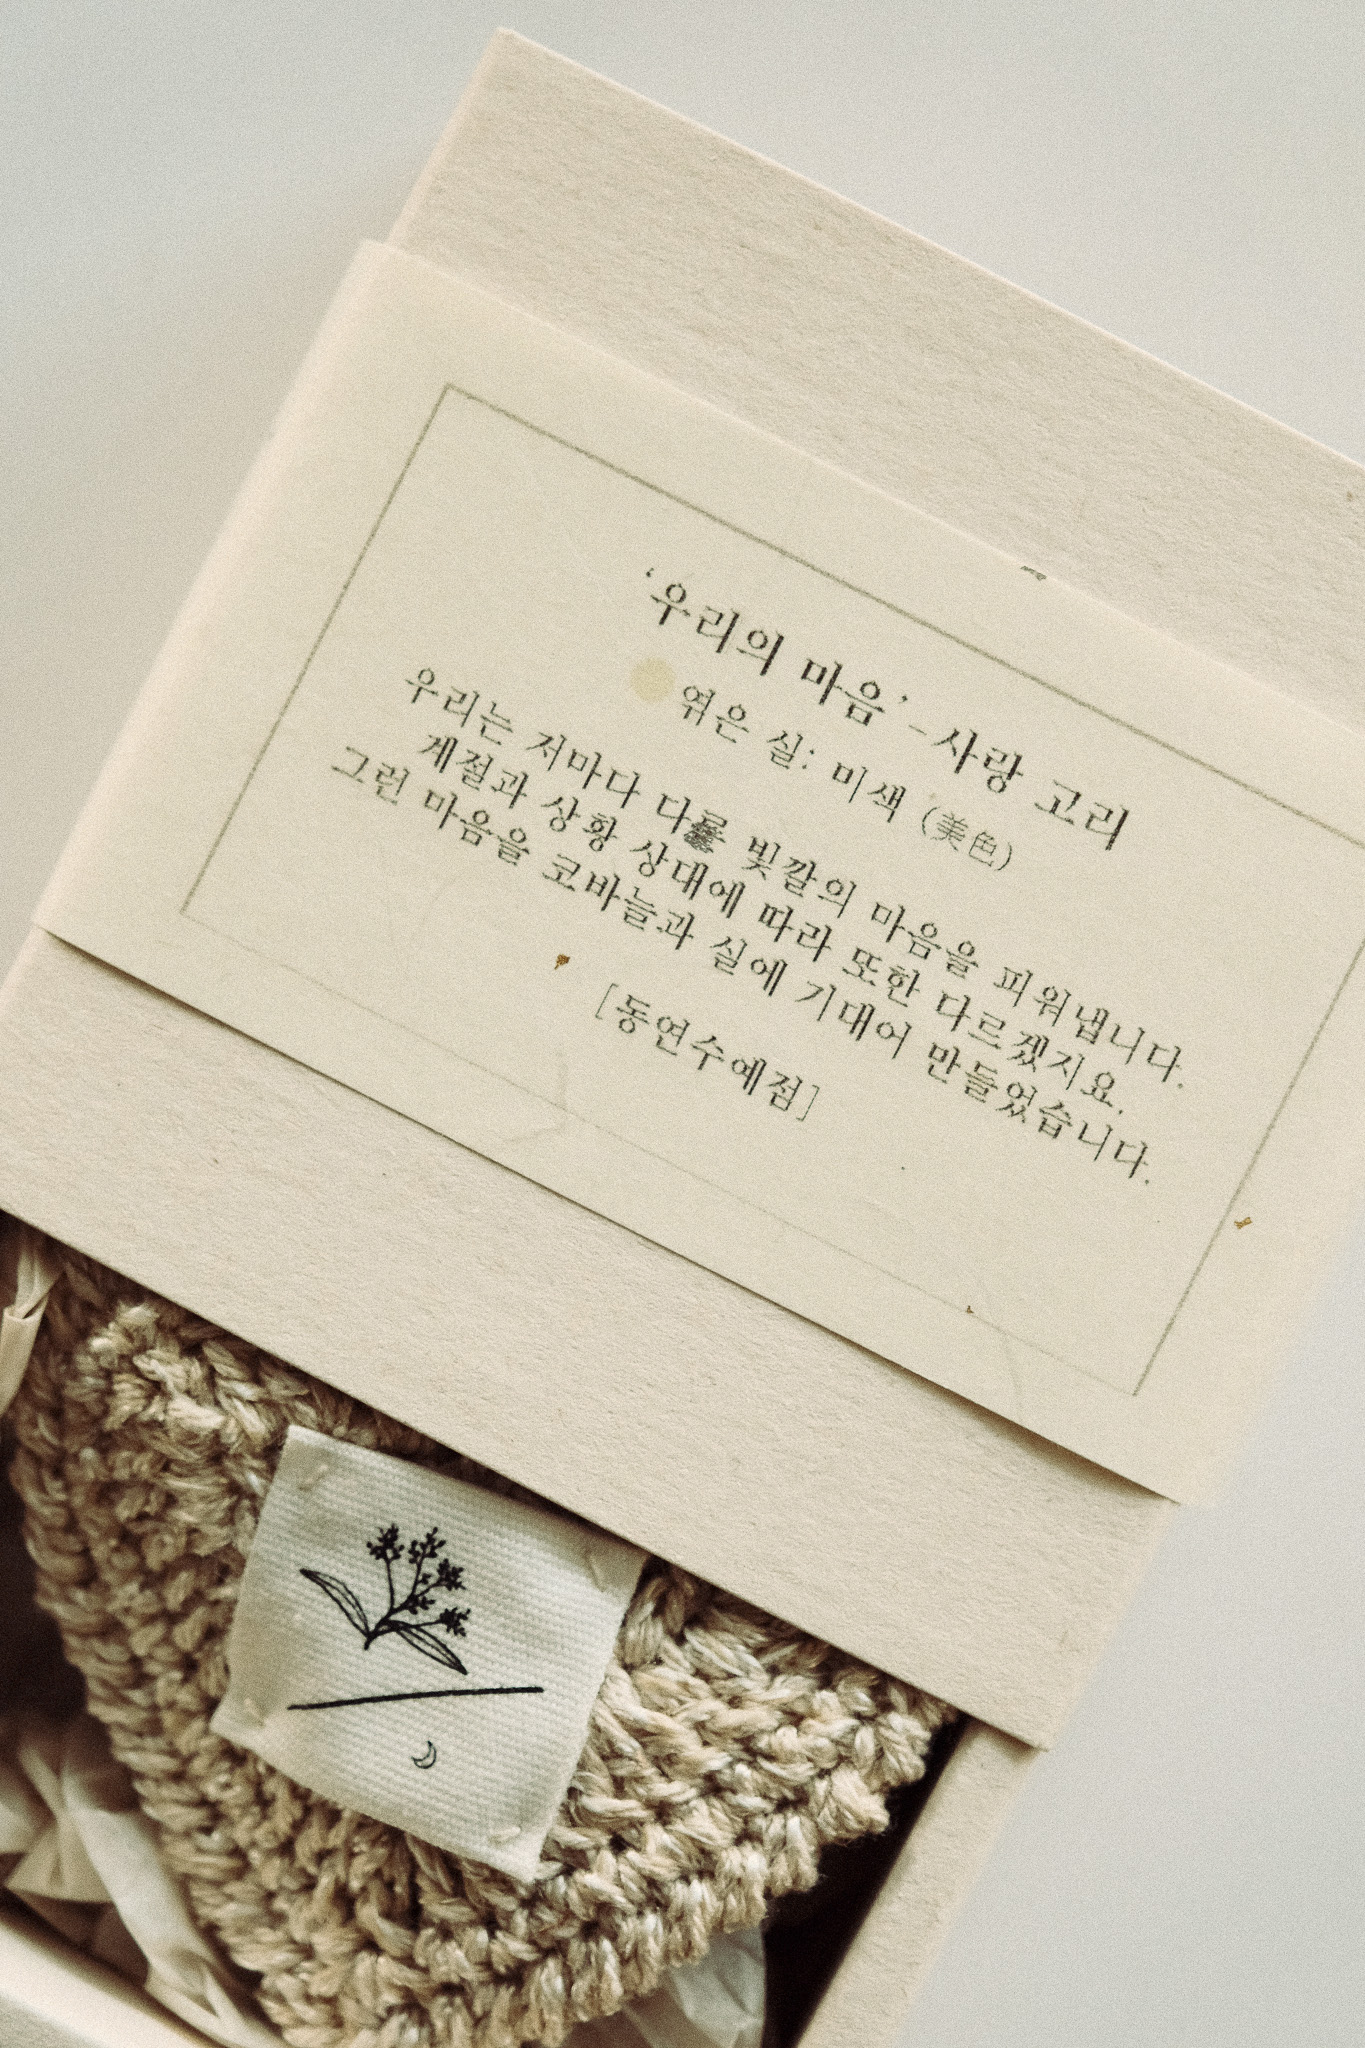 ‘우리의 마음’ - 사랑 고리
엮은 실: 미색 (美色)
우리는 저마다 빛깔의 마음을 피워냅니다.
계절과 상황 상대에 따라 또한 다르겠지요.
그런 마음을 코바늘과 실에 기대어 만들었습니다.
[동연수예점]